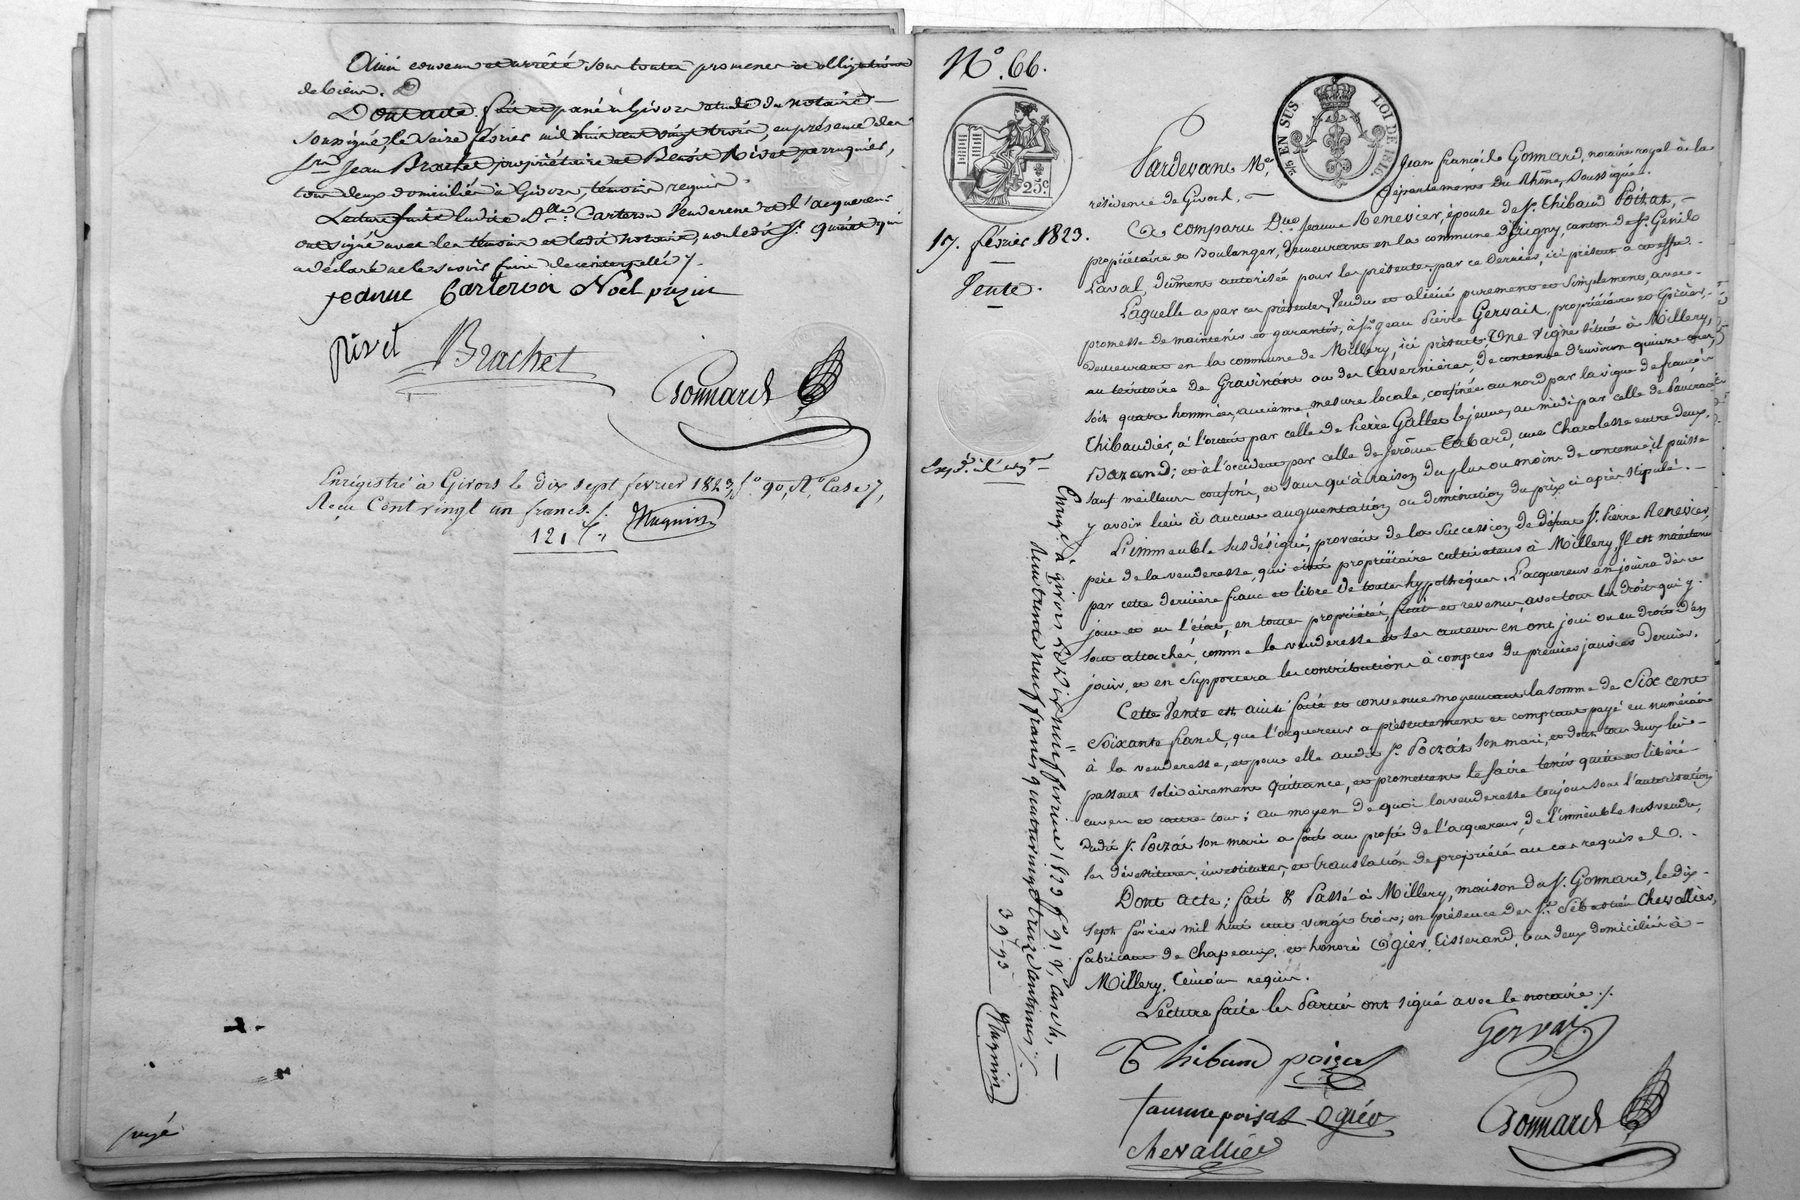 Ainsi convenu et arrêté sous toutes promesses et obligations
de biens.
Dont acte, fait et passé à Givors étude du notaire
soussigné, le seize février mil huit cent vingt trois, en présence des
Srs Jean Brachet propriétaire et Benoit Rivet perruquier,
tous deux domiciliés à Givors, témoins requis.
Lecture faite ladite Dlle Carteron venderesse et l'acquereur
ont signé avec les témoins et ledit notaire, non ledit Sr qui
a déclaré ne le savoir faire de ce interpellé ./.
jeanne Carteron Noël pizin
rivet Brachet
Gonnard
Enregistré à Givors le dix sept février 1823, fo 90, Ro Case 7,
Reçu Cent vingt un francs ./.
121 f.
Magnin
payé
No. 66.
25c
EN SUS
LOI DE 1816
17. février 1823.
Vente.
Expd. à l'acqr
Pardevant Me Jean françois Gonnard, notaire royal à la
résidence de Givors, département du Rhône, Soussigné.
A comparu Dme Jeanne Renevier, épouse de Sr. Thibaud Poizat,
propriétaire et Boulanger, demeurant en la commune d'Irigny, canton de St. Genis
Laval, dûment autorisée pour les présentes par ce dernier, ici présent à cet effet.
Laquelle a par ces présentes, vendu et aliéné purement et simplement, avec
promesse de maintenir et garantir, à Sr. Jean Pierre Gervais, propriétaire et Epicier,
demeurant en la commune de Millery, ici présent; Une vigne située à Millery,
au territoire de Gravinant ou des Cavernières, de contenue d'environ quinze ares,
soit quatre hommées, ancienne mesure locale, confinée au nord par la vigne de françois
Thibaudier, à l'orient par celle de Pierre Gallet le jeune, au midi par celle de Pancrace
Bazand; et à l'occident par celle de Jérôme, une Charolesse entre deux,
sauf meilleurs confins, et sans qu'à raison du plus ou moins de contenue, il puisse
y avoir lieu à aucune augmentation ou diminution du prix ci après stipulé.
L'immeuble susdésigné, provient de la succession de défunt Sr. Pierre Renevier,
père de la venderesse, qui était propriétaire cultivateur à Millery, Il est maintenu
par cette dernière franc et libre de toutes hypothèques. L'acquereur en jouira dès ce
jour et en l'état, en toutes propriété, fruits et revenus, avec tous les droits qui y
sont attachés, comme la venderesse et ses auteurs en ont joui ou eu droit d'en
jouir, et en supportera les contributions à compter du premier janvier dernier.
Cette Vente est ainsi faite et convenue moyennant la somme de Six cent
Soixante francs, que l'acquereur a présentement et comptant payé en numéraire
à la venderesse, et pour elle audit Sr. Poizat son mari, et dont tous deux lui
passent solidairement quittance, et promettent le faire tenir quitte et libéré
envers et contre tous; au moyen de quoi la venderesse toujours sous l'autorisation
dudit Sr. Poizat son mari a fait au profit de l'acquereur, de l'immeuble susvendu,
les dévestitures, investitures, et translation de propriété au cas requises.
Dont acte; fait & Passé à Millery, maison du Sr. Gonnard, le dix
sept février mil huit cent vingt trois; en présence des Srs Sébastien Chevallier,
fabricant de Chapeaux, et honoré Ogier, tisserand, tous deux domiciliés à
Millery, témoins requis.
Lecture faite les Parties ont signé avec le notaire ./.
Gervais
Thibaud poizat
jeanne poisat Ogier
Gonnard
chevallier
Enregé à givors le Dix neuf fevrier 1823 fo 91 Vo Case 4,
Reçu trente neuf francs quatre vingt treize Centimes ./.
39-93 Magnin